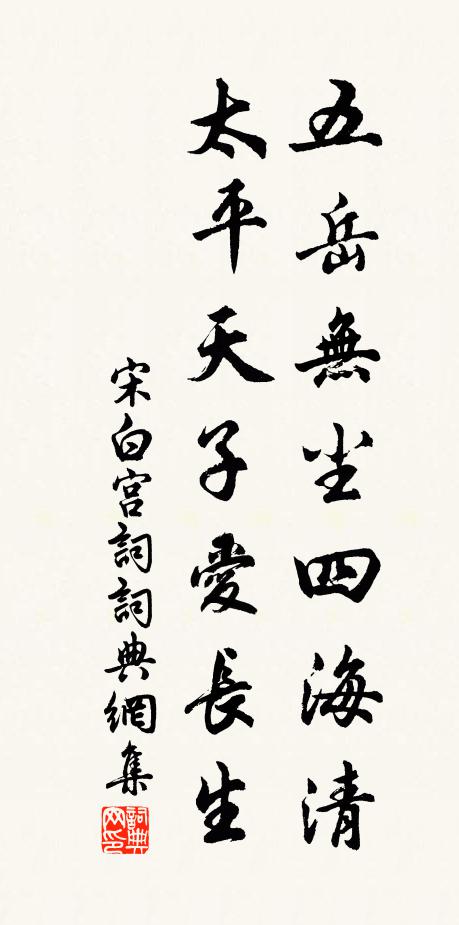 五岳無尘四海清
太平天子愛長生
宋白宫詞詞典網集
詞典网印